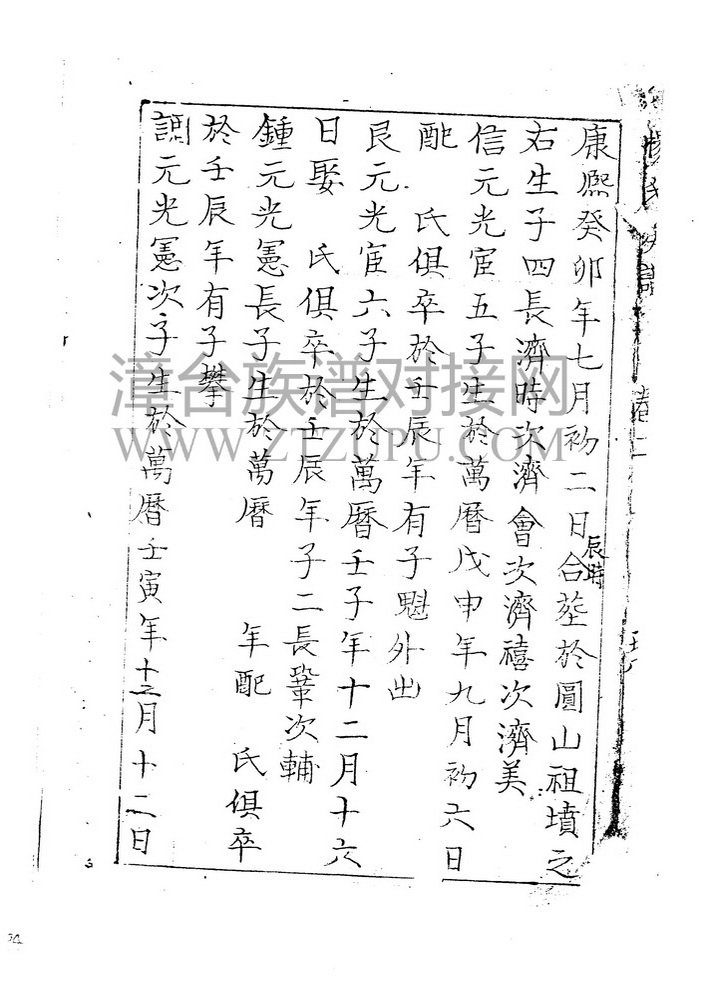 康熙癸卯年七月初二日辰時合塟於圓山祖墳之
右生子四長濟時次濟會次濟禧次濟美
信元光宦五子生於萬曆戊申年九月初六日
配 氏俱卒於壬辰年有子魁外出
艮元光宦六子生於萬曆壬子年十二月十六
日娶 氏俱卒於壬辰年子二長鞏次輔
鍾元光憲長子生於萬曆 年配 氏俱卒
於壬辰年有子攀
元光憲次子生於萬曆壬寅年十二月十二日
漳台族谱对接网
WWW.ZTZUPU.COM